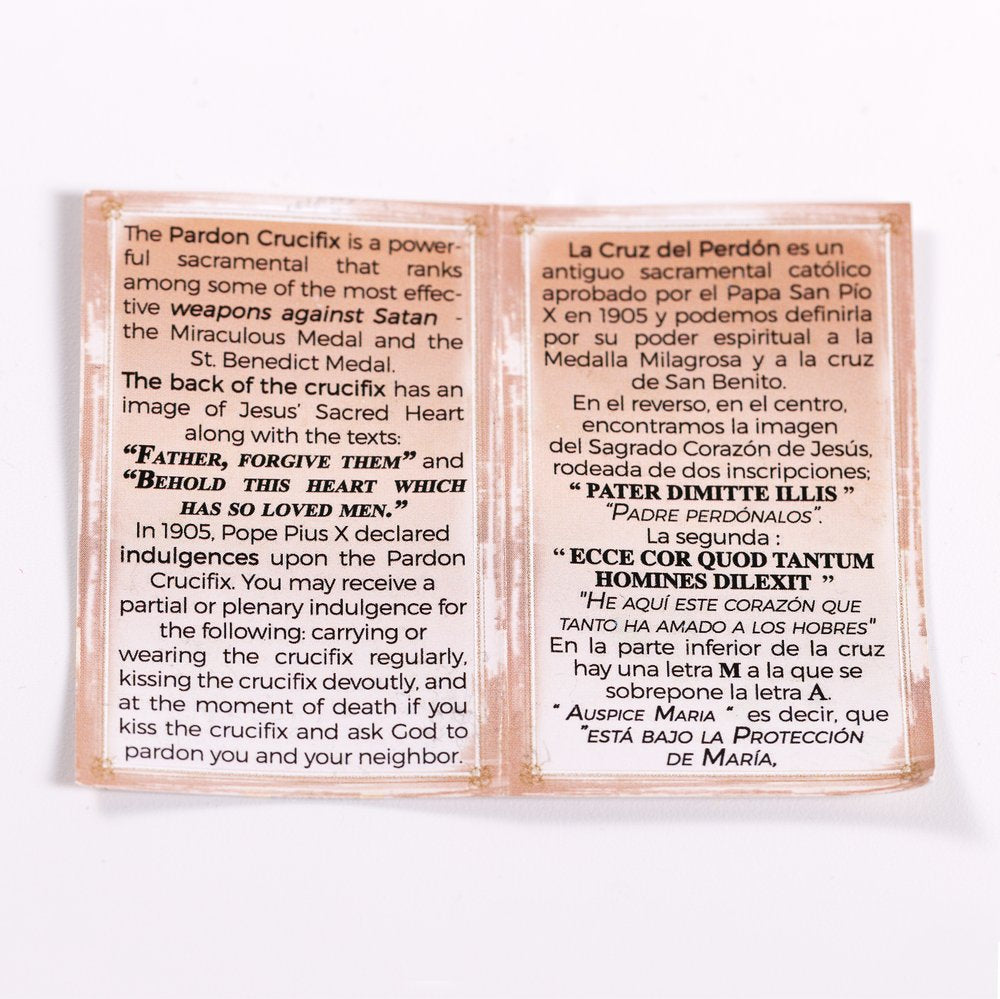 The Pardon Crucifix is a power-
ful sacramental that ranks
among some of the most effec-
tive weapons against Satan -
the Miraculous Medal and the
St. Benedict Medal.
The back of the crucifix has an
image of Jesus' Sacred Heart
along with the texts:
“FATHER, FORGIVE THEM” and
“BEHOLD THIS HEART WHICH
HAS SO LOVED MEN.”
In 1905, Pope Pius X declared
indulgences upon the Pardon
Crucifix. You may receive a
partial or plenary indulgence for
the following: carrying or
wearing the crucifix regularly,
kissing the crucifix devoutly, and
at the moment of death if you
kiss the crucifix and ask God to
pardon you and your neighbor.
La Cruz del Perdón es un
antiguo sacramental católico
aprobado por el Papa San Pío
X en 1905 y podemos definirla
por su poder espiritual a la
Medalla Milagrosa y a la cruz
de San Benito.
En el reverso, en el centro,
encontramos la imagen
del Sagrado Corazón de Jesús,
rodeada de dos inscripciones;
“ PATER DIMITTE ILLIS ”
“PADRE PERDÓNALOS”.
La segunda :
“ ECCE COR QUOD TANTUM
HOMINES DILEXIT ”
"HE AQUÍ ESTE CORAZÓN QUE
TANTO HA AMADO A LOS HOBRES"
En la parte inferior de la cruz
hay una letra M a la que se
sobrepone la letra A.
“ AUSPICE MARIA “ es decir, que
"ESTÁ BAJO LA PROTECCIÓN
DE MARÍA,